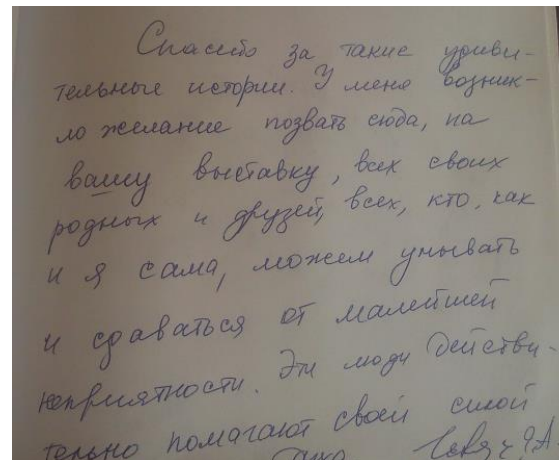 Спасибо за такие удиви-
тельные истории. У меня возник-
ло желание позвать сюда, на
вашу выставку, всех своих
родных и друзей, всех, кто, как
и я сама, можем унывать
и сдаваться от малейшей
неприятности. Эти люди действи-
тельно помогают своей силой